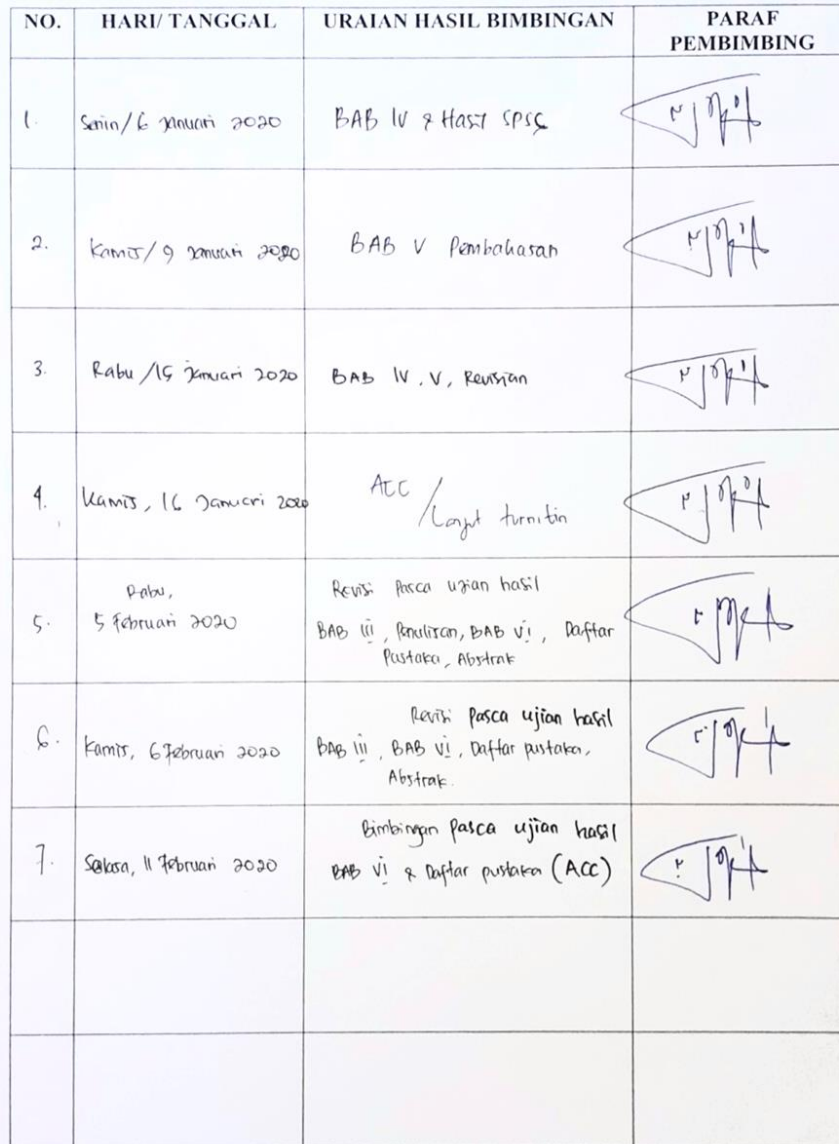 NO. HARI/ TANGGAL URAIAN HASIL BIMBINGAN PARAF PEMBIMBING
1. Senin/ 6 Januari 2020 BAB IV & Hasil SPSS
2. Kamis/ 9 Januari 2020 BAB V Pembahasan
3. Rabu /15 Januari 2020 BAB IV, V, Revisian
4. Kamis, 16 Januari 2020 ACC / Lanjut turnitin
5. Rabu,
5 Februari 2020
Revisi Pasca ujian hasil
BAB III, Penulisan, BAB VI, Daftar
Pustaka, Abstrak
6. Kamis, 6 Februari 2020
Revisi Pasca ujian hasil
BAB III, BAB VI, Daftar pustaka,
Abstrak.
7. Selasa, 11 Februari 2020
Bimbingan Pasca ujian hasil
BAB VI & Daftar pustaka (ACC)